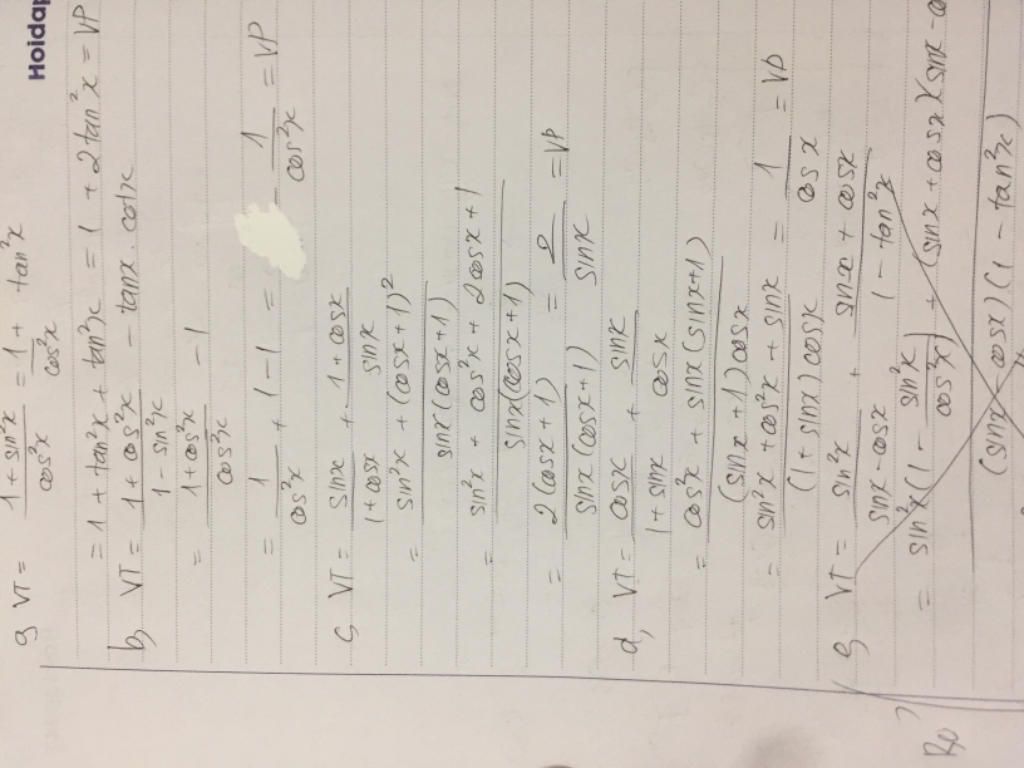 Hoidap
a, VT = (1 + sin²x)/(cos²x) = 1/(cos²x) + tan²x
= 1 + tan²x + tan²x = 1 + 2tan²x = VP
b, VT = (1 + cos²x)/(1 - sin²x) - tanx . cotx
= (1 + cos²x)/(cos²x) - 1
= 1/(cos²x) + 1 - 1 = 1/(cos²x) = VP
c, VT = sinx/(1 + cosx) + (1 + cosx)/sinx
= (sin²x + (cosx + 1)²)/(sinx(cosx + 1))
= (sin²x + cos²x + 2cosx + 1)/(sinx(cosx + 1))
= 2(cosx + 1)/(sinx(cosx + 1)) = 2/sinx = VP
d, VT = cosx/(1 + sinx) + sinx/cosx
= (cos²x + sinx(sinx + 1))/((sinx + 1)cosx)
= (sin²x + cos²x + sinx)/((1 + sinx)cosx) = 1/cosx = VP
VT = sin²x/(sinx - cosx) + (sinx + cosx)/(1 - tan²x)